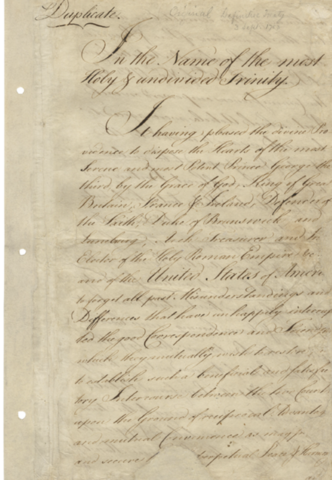 Duplicate.
In the Name of the most
Holy & undivided Trinity.
It having pleased the divine Pro
vidence to dispose the Hearts of the most
Serene and most Potent Prince George the
third by the Grace of God, King of Great
Britain, France & Ireland, Defender of
the Faith, Duke of Brunswick and
Luneburg, Arch Treasurer and
Elector of the Holy Roman Empire &c
and of the United States of America
to forget all past Misunderstandings and
Differences that have unhappily interrup
ted the good Correspondence and Friendship
which they mutually wish to restore;
to establish such a beneficial and satisfac
tory Intercourse between the two Countries
upon the Ground of reciprocal Advantages
and mutual Convenience as may
and secure Perpetual Peace &